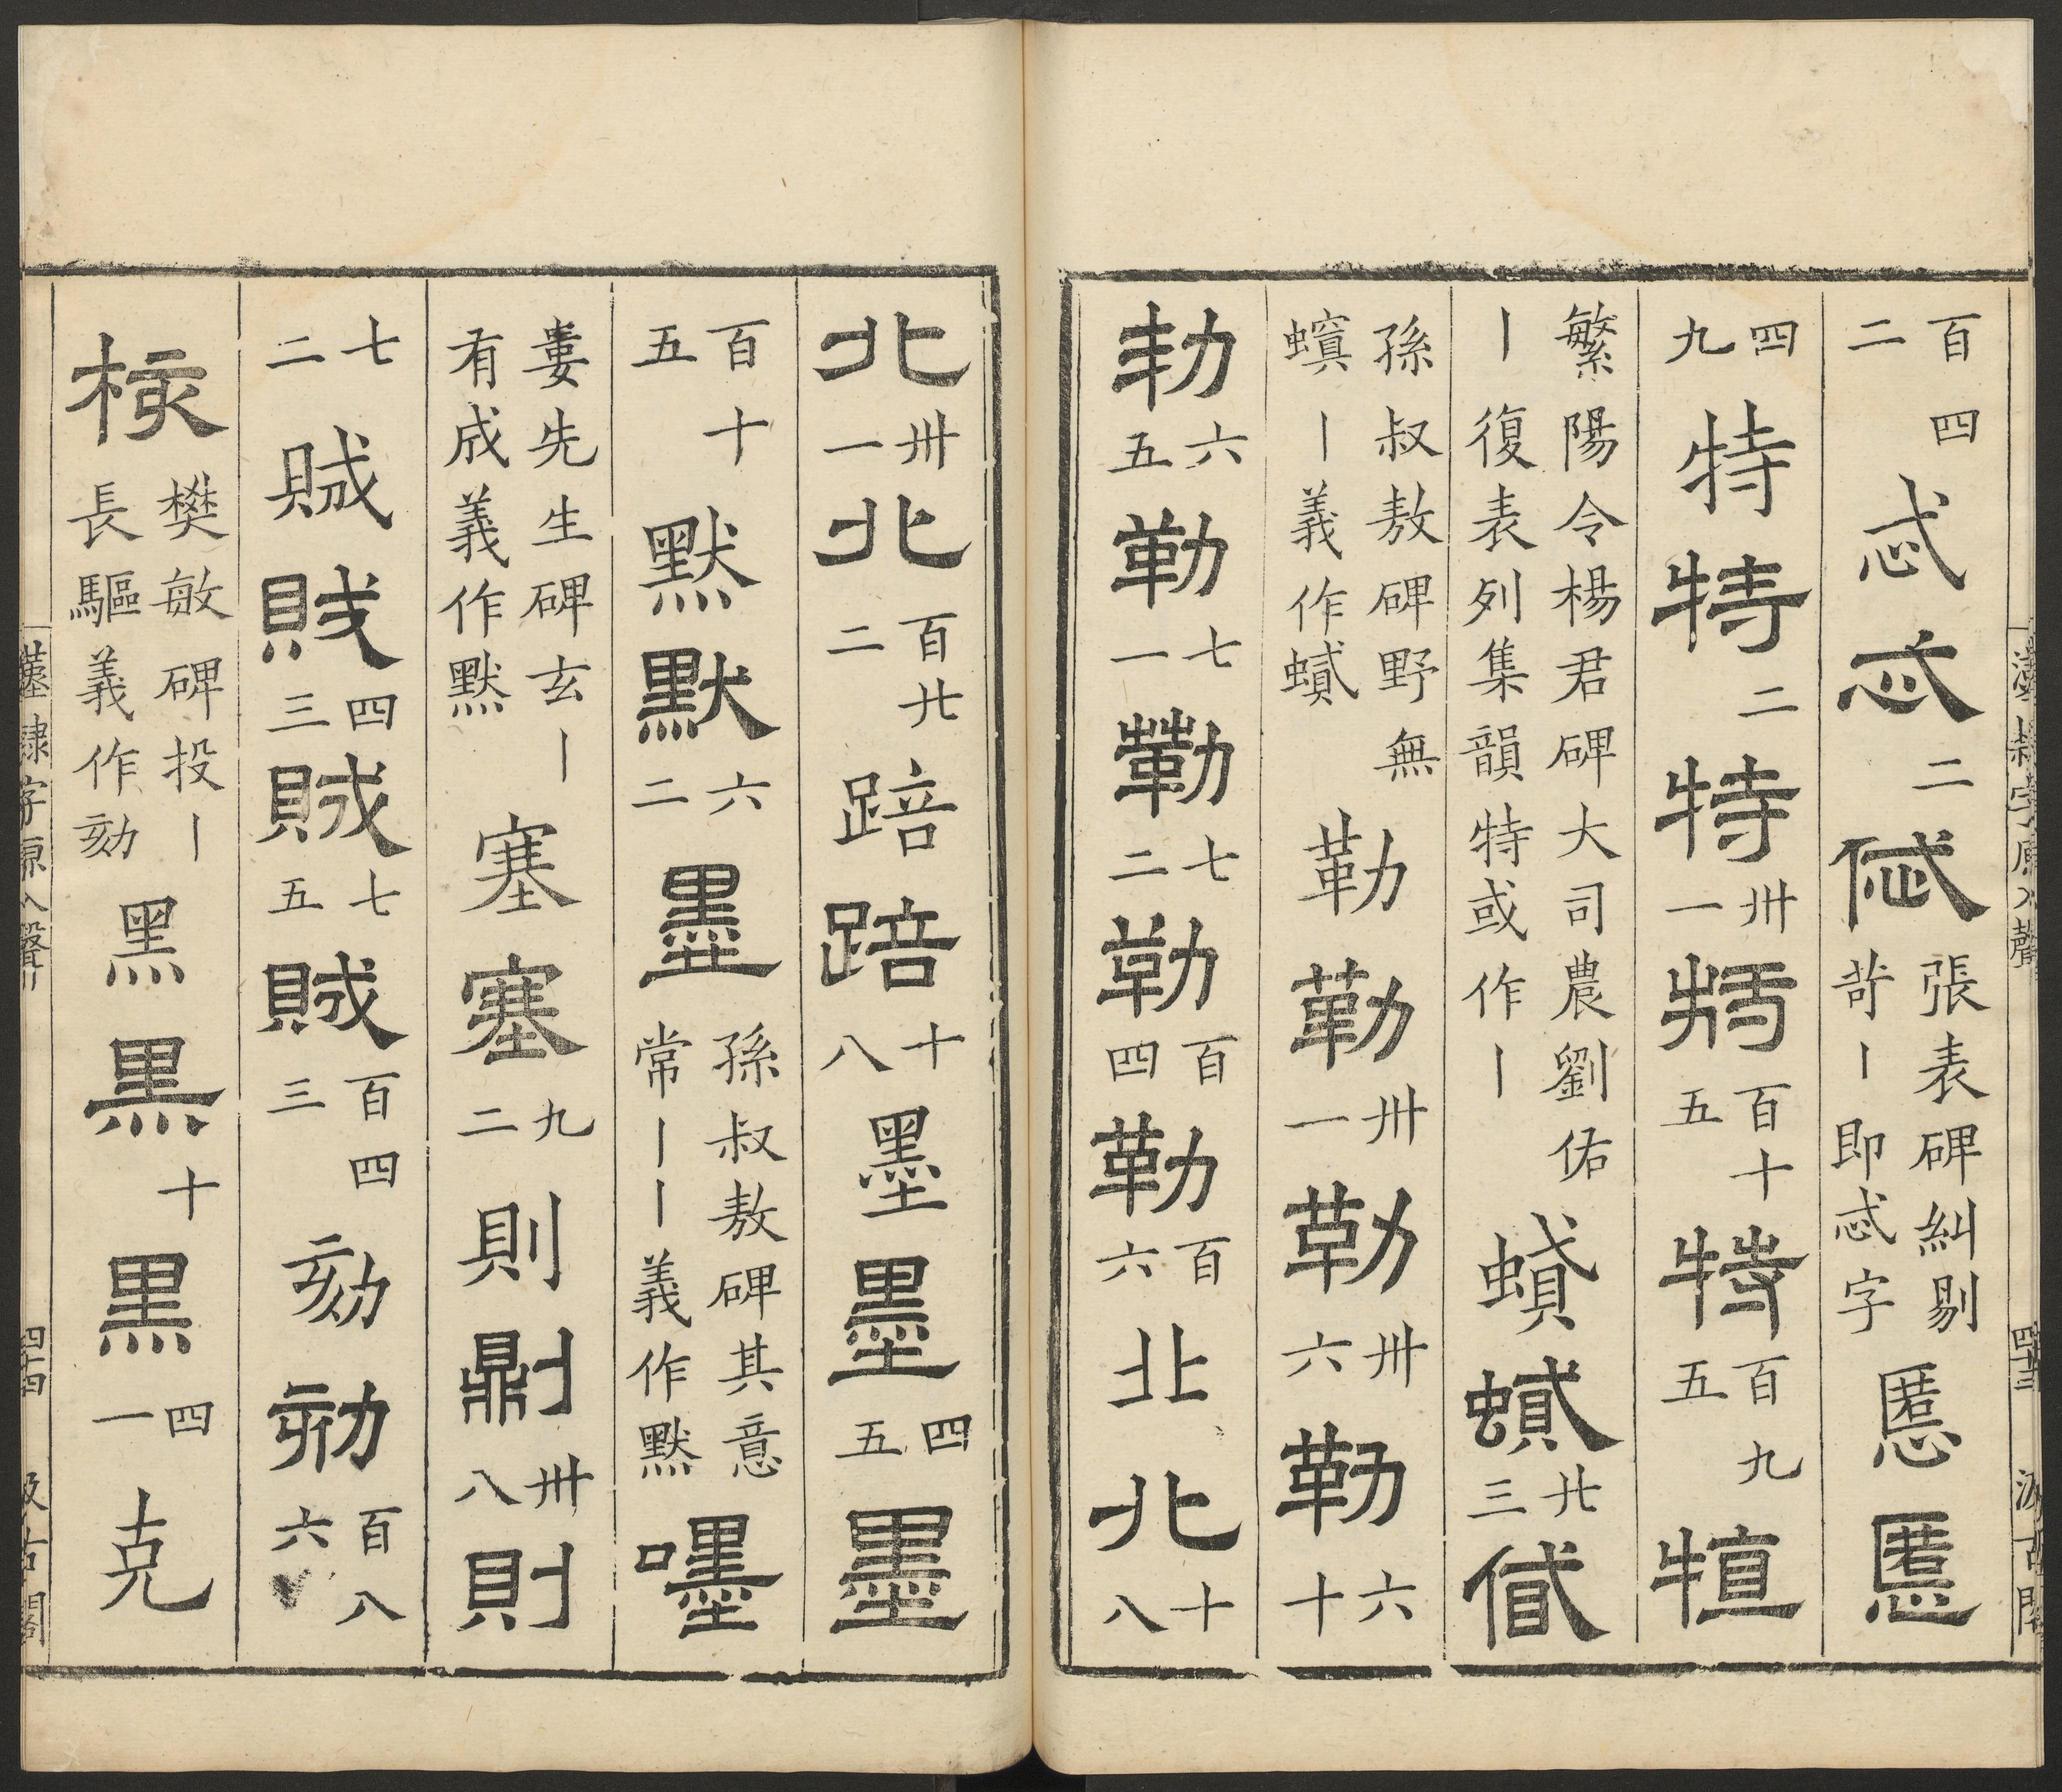 百四二忒忒二㒃張表碑糾剔苛丨即忒字慝慝
四九特特二特卅一特百十五特百九五犆
繁陽令楊君碑大司農劉佑丨復表列集韻特或作丨蟘蟘廿三
孫叔敖碑野無螟丨義作蟘勒勒卅一勒卅六勒六十
勒六五勒七一勒七二勒百四勒百六北北十八
北卅一北百廿二踣踣十八墨墨四五墨
百十五默默六二墨孫叔敖碑其意常丨丨義作默嚜
婁先生碑玄丨有成義作默塞塞九二則鼎刂卅八則
七二賊賊四三賊七五賊百四三劾劾百八六
核樊敏碑投丨長驅義作劾黑黑十黒四一克
漢隸字原入聲 四十三 汲古閣
漢隸字原入聲 四十四 汲古閣